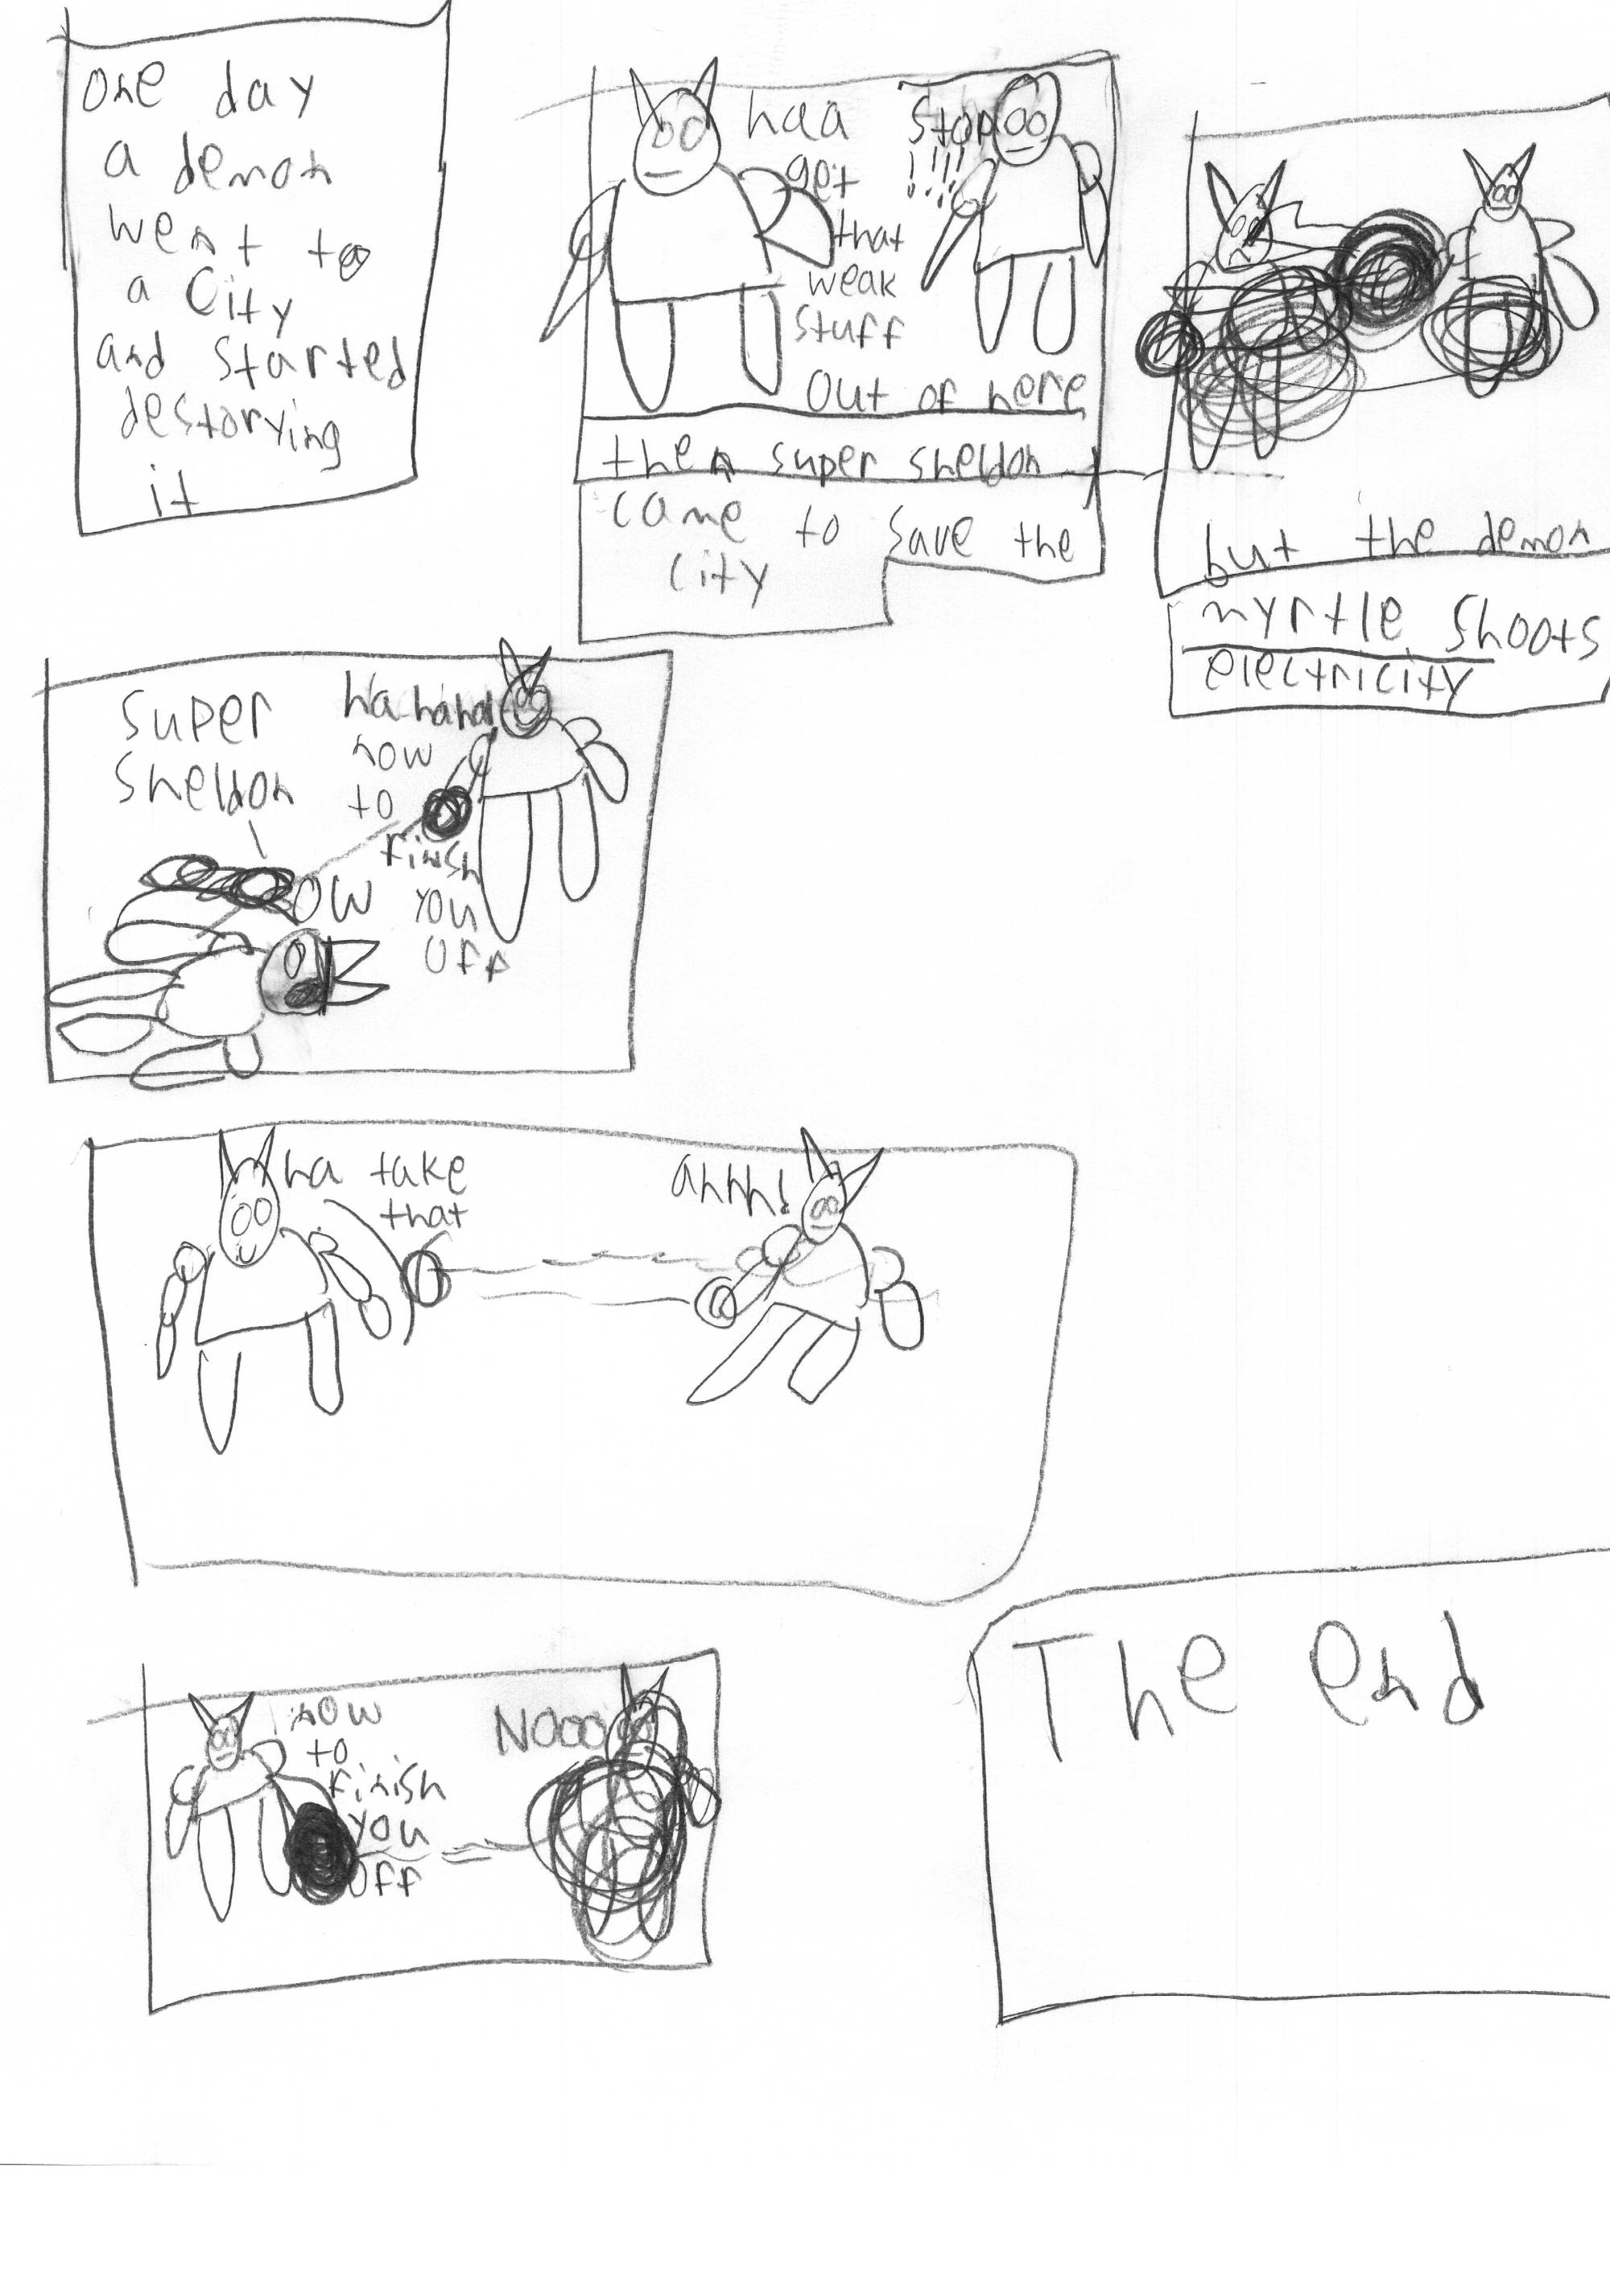 one day
a demon
went to
a City
and started
destorying
it
haa
get
that
weak
stuff
out of here
Stop
!!!!
then super sheldon
came to save the
city
but the demon
myrtle shoots
electricity
super
sheldon
ha haha
now
to
finish
you
off
ow
ha take
that
ahhh!
now
to
finish
you
off
Nooo
The end